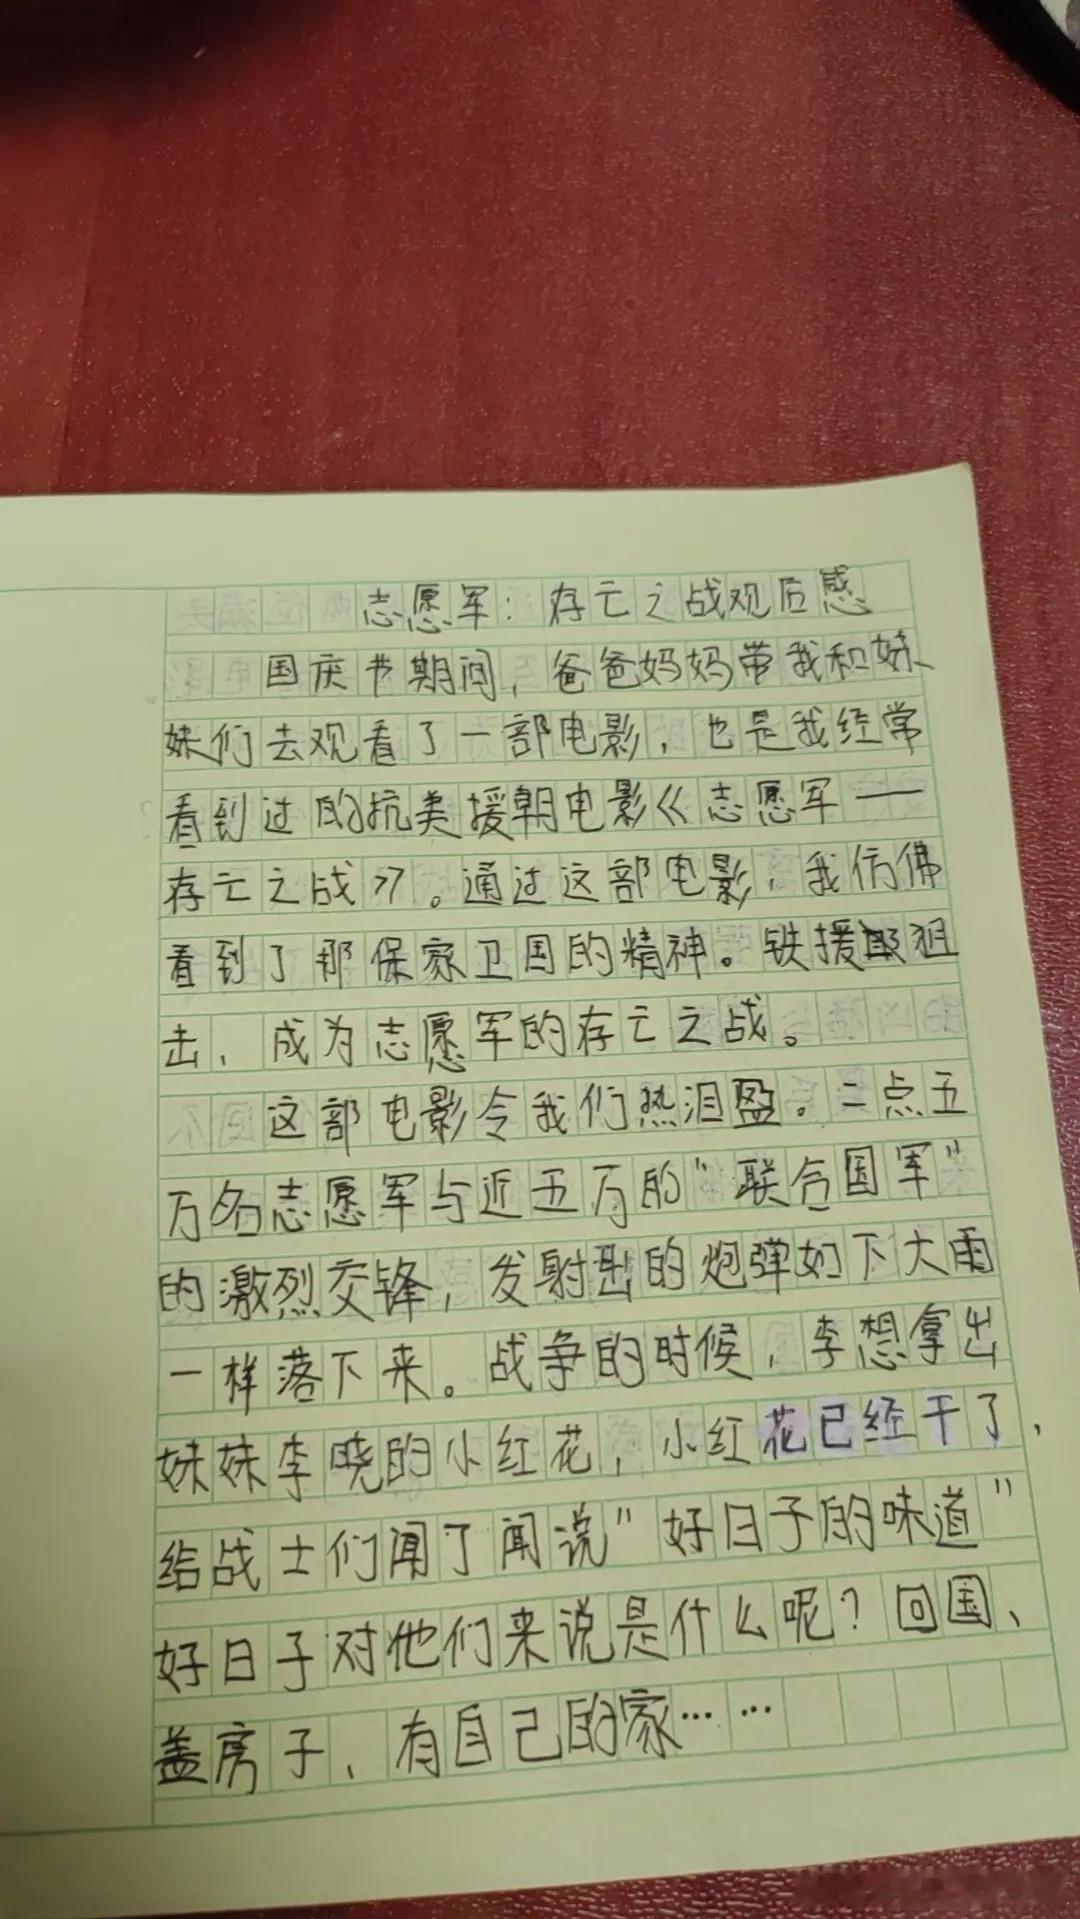 志愿军：存亡之战观后感
国庆节期间，爸爸妈妈带我和妹
妹们去观看了一部电影，也是我经常
看到过的抗美援朝电影《志愿军——
存亡之战》。通过这部电影，我仿佛
看到了那保家卫国的精神。铁援狙
击，成为志愿军的存亡之战。
这部电影令我们热泪盈。二点五
万名志愿军与近五万的“联合国军”
的激烈交锋，发射出的炮弹如下大雨
一样落下来。战争的时候，李想拿出
妹妹李晓的小红花，小红花已经干了，
给战士们闻了闻说“好日子的味道”
好日子对他们来说是什么呢？回国、
盖房子，有自己的家……